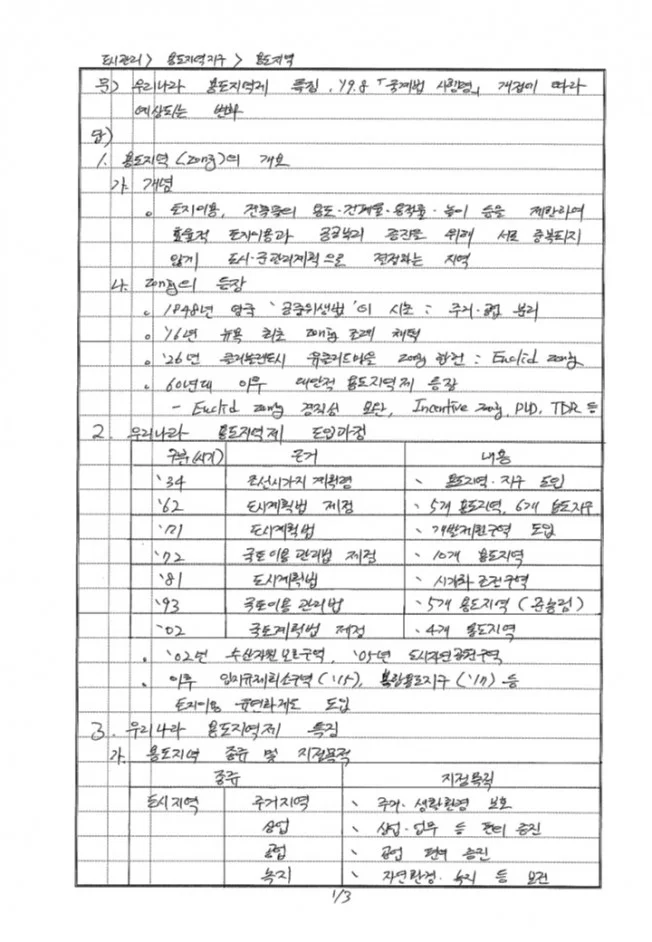 도시관리 > 용도지역지구 > 용도지역
문) 우리나라 용도지역제 특징, '19.8 「국계법 시행령」 개정에 따라
예상되는 변화
답)
1. 용도지역 (Zoning)의 개요
가. 개념
o 토지이용, 건축물의 용도·건폐율·용적률·높이 등을 제한하여
효율적 토지이용과 공공복리 증진을 위해 서로 중복되지
않게 도시·군관리계획으로 결정하는 지역
나. zoning의 등장
o 1848년 영국 '공중위생법'이 시초 : 주거·공업 분리
o '16년 뉴욕 최초 zoning 조례 채택
o '26년 유클리드마을 zoning 합헌 : Euclid zoning
o 60년대 이후 대안적 용도지역제 등장
- Euclid zoning 경직성 보완, Incentive zoning, PUD, TDR 등
2. 우리나라 용도지역제 도입과정
구분(시기) 근거 내용
'34 조선시가지 계획령 · 용도지역·지구 도입
'62 도시계획법 제정 · 5개 용도지역, 6개 용도지구
'71 도시계획법 · 개발제한구역 도입
'72 국토이용 관리법 제정 · 10개 용도지역
'81 도시계획법 · 시가화 조정구역
'93 국토이용 관리법 · 5개 용도지역 (준농림)
'02 국토계획법 제정 · 4개 용도지역
o '02년 수산자원 보호구역, '05년 도시자연공원구역
o 이후 입지규제최소구역('15), 복합용도지구('17) 등
토지이용 유연화제도 도입
3. 우리나라 용도지역제 특징
가. 용도지역 종류 및 지정목적
종류 지정목적
도시지역 주거지역 · 주거·생활환경 보호
상업 · 상업·업무 등 편의 증진
공업 · 공업 편의 증진
녹지 · 자연환경·녹지 등 보전
1/3